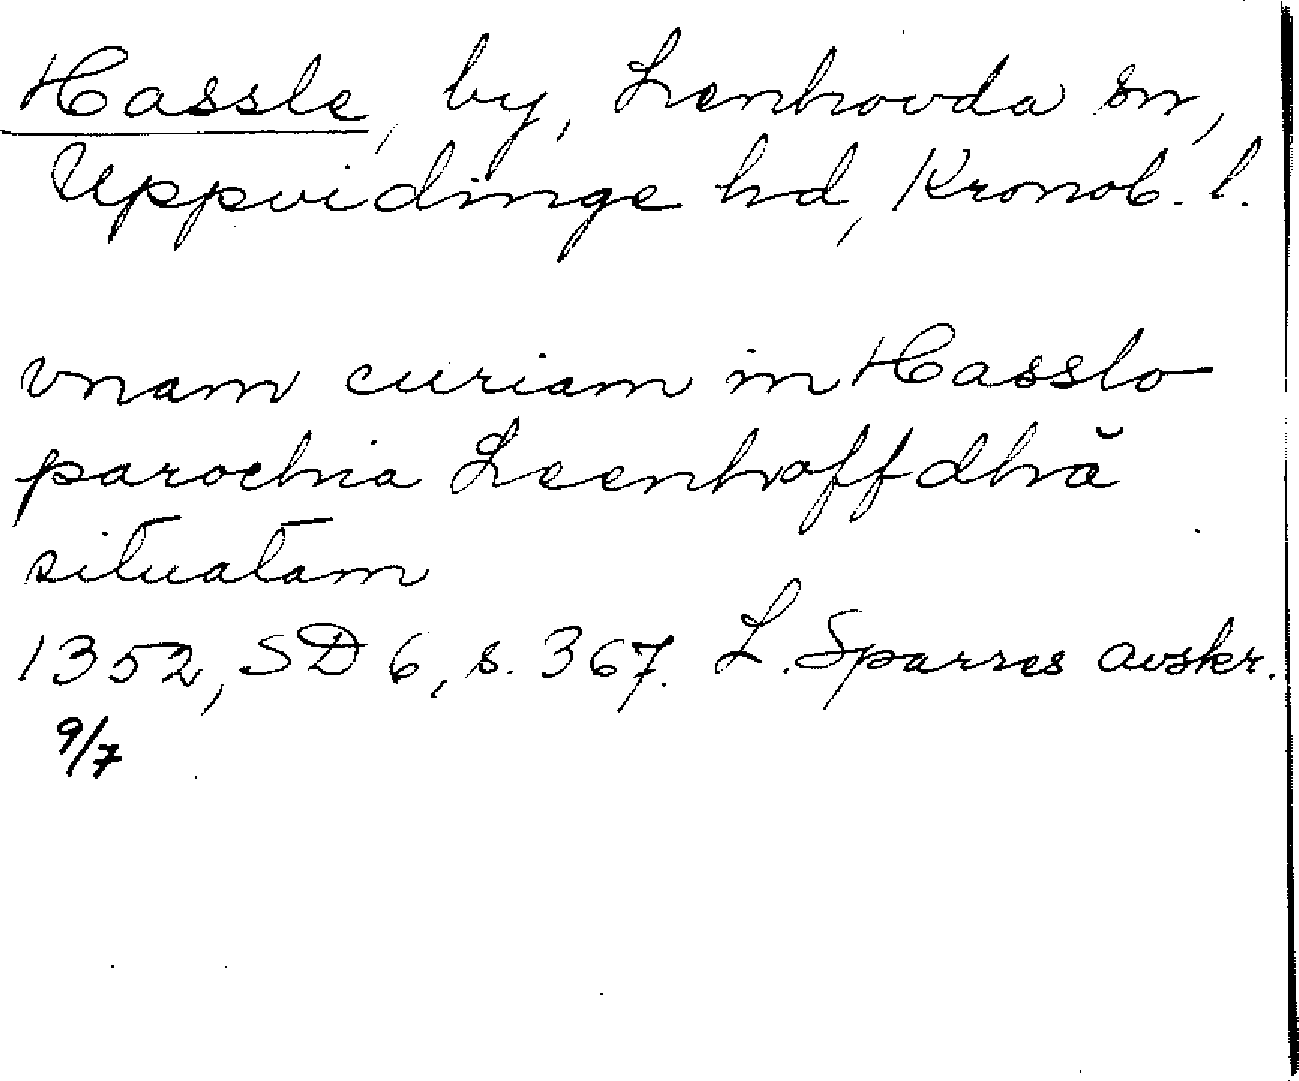 Hassle, by, Lenhovda sn,
Uppvidinge hd, Kronob. l.
vnam curiam in Hasslo
parochia Leenhoffdhă
situatam
1352, SD 6, s. 367. L. Sparres avskr.
9/7